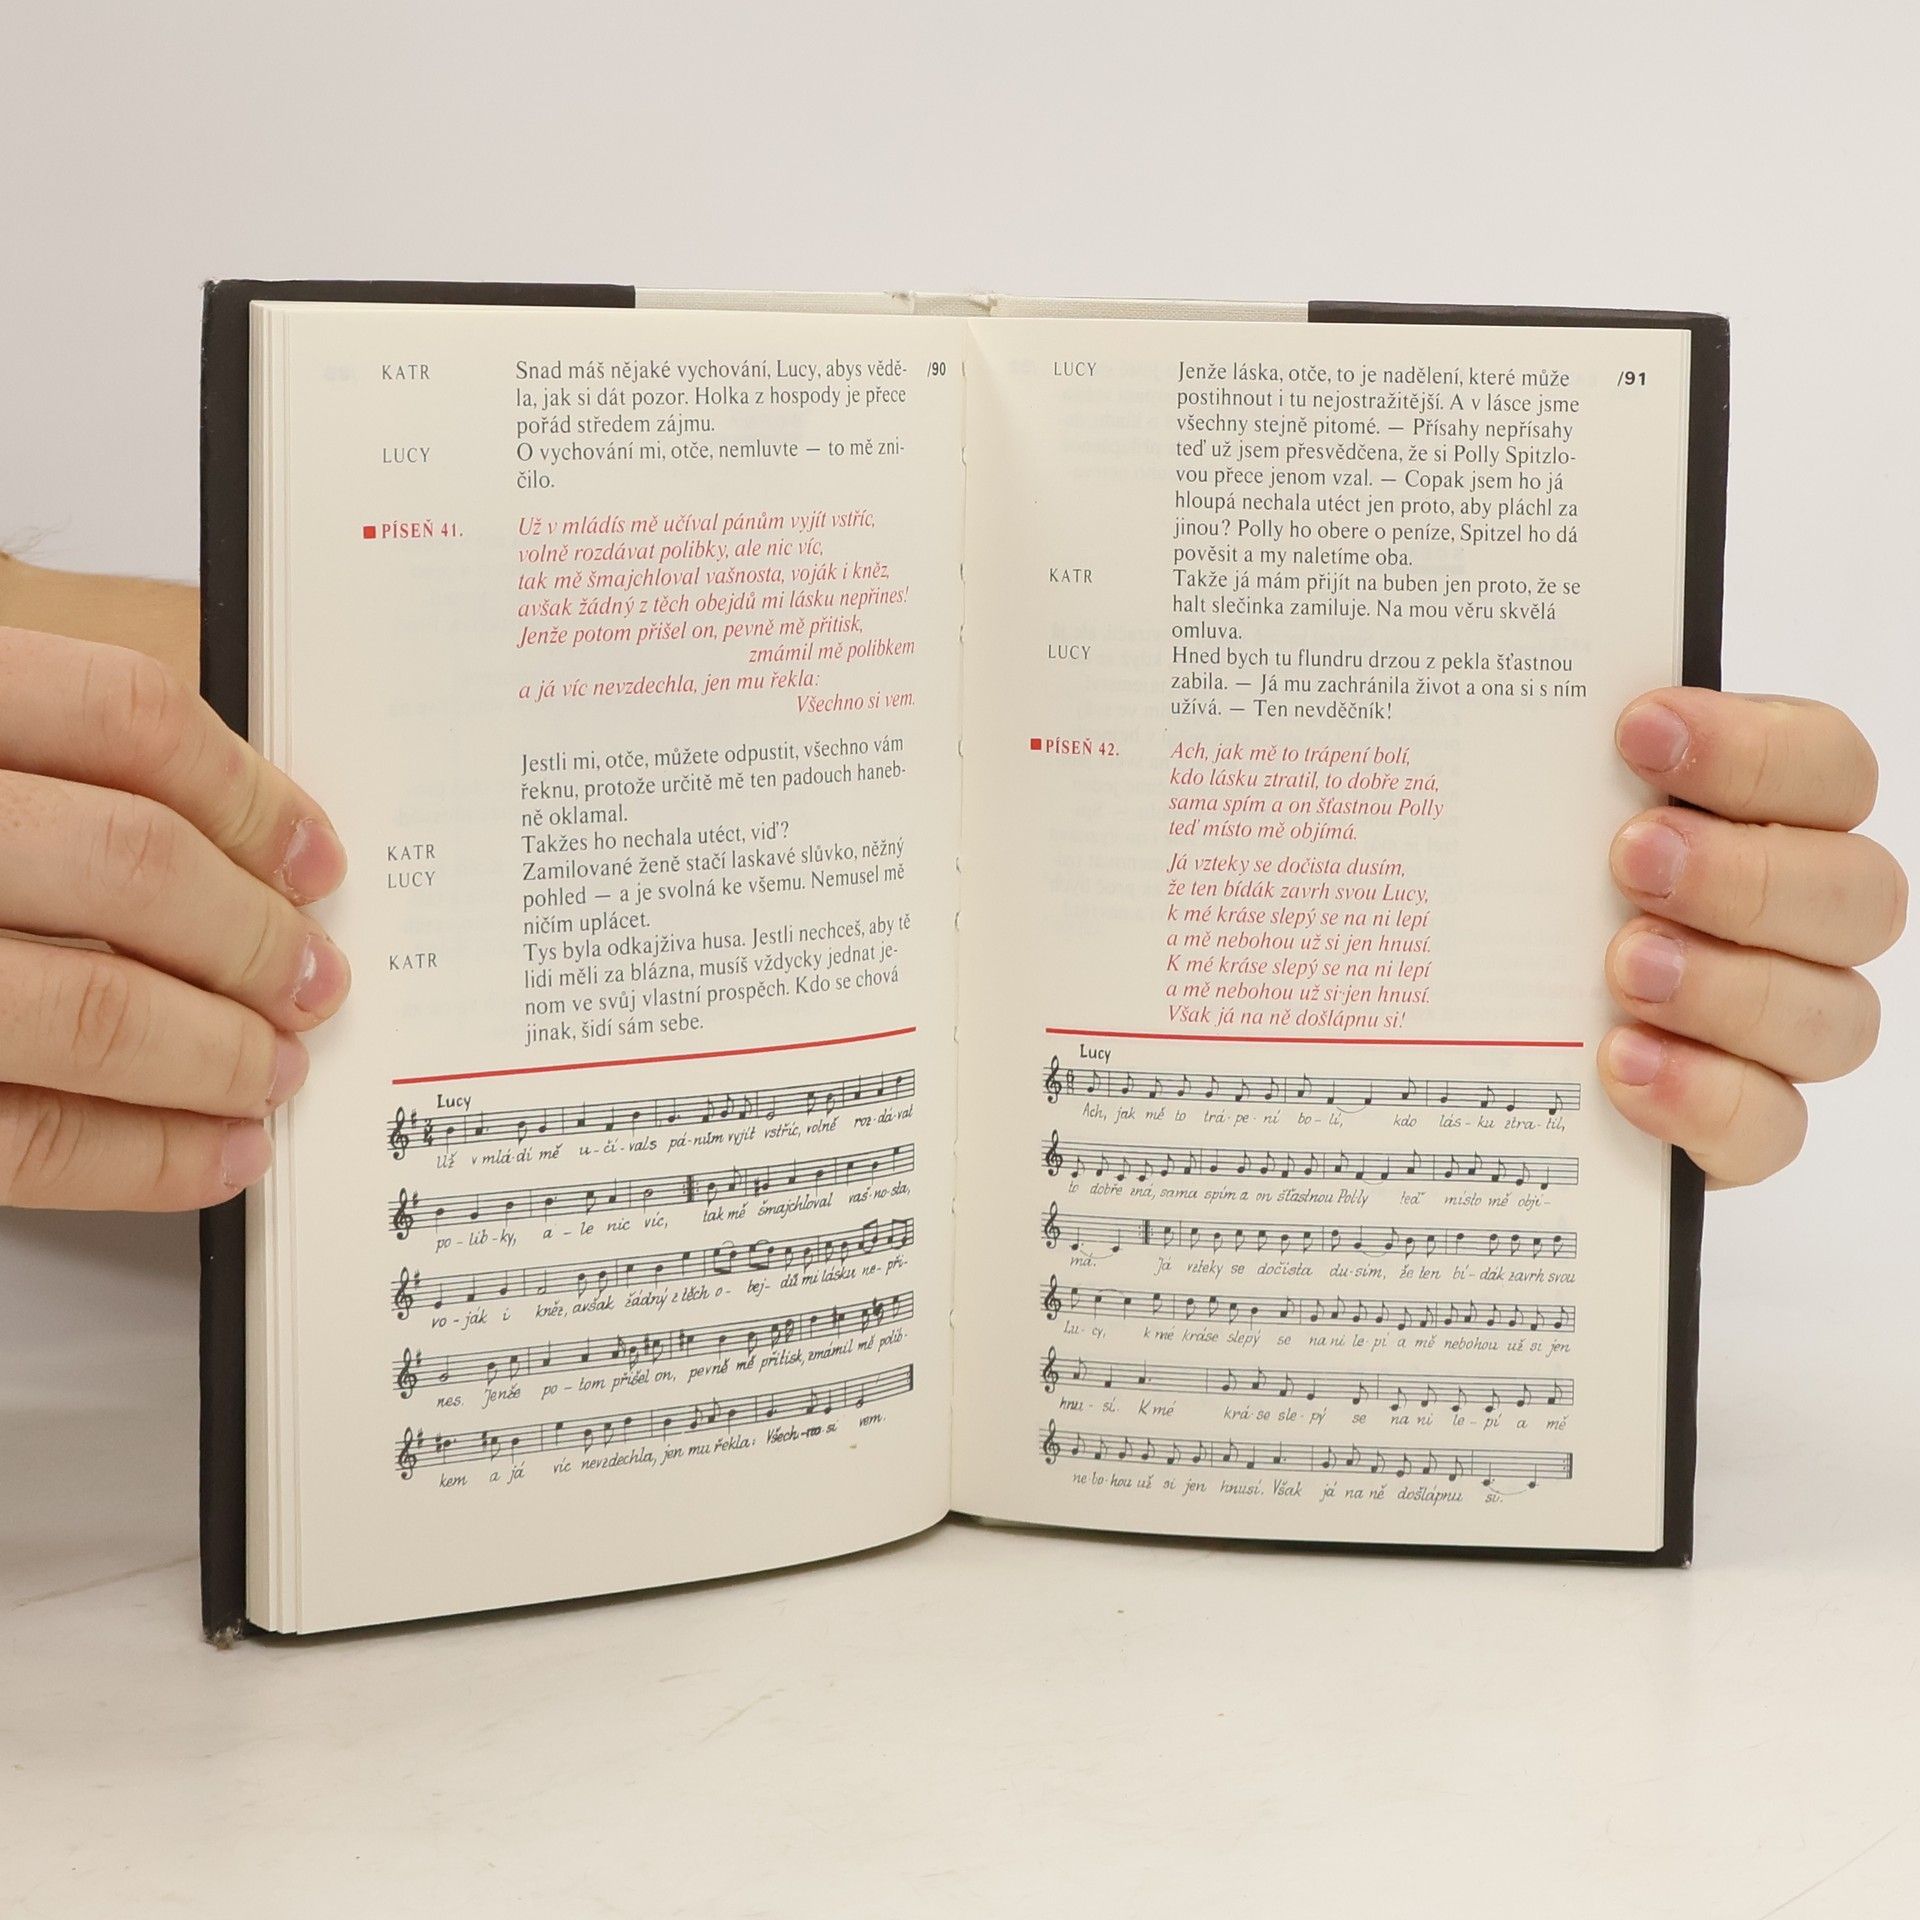 /90
KATR Snad máš nějaké vychování, Lucy, abys vědě-
la, jak si dát pozor. Holka z hospody je přece
pořád středem zájmu.
LUCY O vychování mi, otče, nemluvte — to mě zni-
čilo.
■ PÍSEŇ 41. Už v mládís mě učíval pánům vyjít vstříc,
volně rozdávat polibky, ale nic víc,
tak mě šmajchloval vašnosta, voják i kněz,
avšak žádný z těch obejdů mi lásku nepřines!
Jenže potom přišel on, pevně mě přitisk,
zmámil mě polibkem
a já víc nevzdechla, jen mu řekla:
Všechno si vem.
Jestli mi, otče, můžete odpustit, všechno vám
řeknu, protože určitě mě ten padouch haneb-
ně oklamal.
KATR Takžes ho nechala utéct, viď?
LUCY Zamilované ženě stačí laskavé slůvko, něžný
pohled — a je svolná ke všemu. Nemusel mě
ničím uplácet.
KATR Tys byla odkajživa husa. Jestli nechceš, aby tě
lidi měli za blázna, musíš vždycky jednat je-
nom ve svůj vlastní prospěch. Kdo se chová
jinak, šidí sám sebe.
Lucy
Už v mlá-dí mě u-čí-vals pá-nům vyjít vstříc, volně roz-dá-vat
po-lib-ky, a-le nic víc, tak mě šmajchloval vaš-no-sta,
vo-ják i kněz, avšak žádný z těch o-bej-dů mi lásku ne-při-
nes. Jenže po-tom přišel on, pevně mě přitisk, zmámil mě polib-
kem a já víc nevzdechla, jen mu řekla: Všech-no si vem.
/91
LUCY Jenže láska, otče, to je nadělení, které může
postihnout i tu nejostražitější. A v lásce jsme
všechny stejně pitomé. — Přísahy nepřísahy
teď už jsem přesvědčena, že si Polly Spitzlo-
vou přece jenom vzal. — Copak jsem ho já
hloupá nechala utéct jen proto, aby pláchl za
jinou? Polly ho obere o peníze, Spitzel ho dá
pověsit a my naletíme oba.
KATR Takže já mám přijít na buben jen proto, že se
halt slečinka zamiluje. Na mou věru skvělá
omluva.
LUCY Hned bych tu flundru drzou z pekla šťastnou
zabila. — Já mu zachránila život a ona si s ním
užívá. — Ten nevděčník!
■ PÍSEŇ 42. Ach, jak mě to trápení bolí,
kdo lásku ztratil, to dobře zná,
sama spím a on šťastnou Polly
teď místo mě objímá.
Já vzteky se dočista dusím,
že ten bídák zavrh svou Lucy,
k mé kráse slepý se na ni lepí
a mě nebohou už si jen hnusí.
K mé kráse slepý se na ni lepí
a mě nebohou už si jen hnusí.
Však já na ně došlápnu si!
Lucy
Ach, jak mě to trá-pe-ní bo-lí, kdo lás-ku ztra-til,
to dobře zná, sama spím a on šťastnou Pol-ly teď místo mě objí-
má. Já vzteky se dočista du-sím, že ten bí-dák zavrh svou
Lu-cy, k mé kráse slepý se na ni le-pí a mě nebohou už si jen
hnu-sí. K mé krá-se sle-pý se na ni le-pí a mě
ne-bo-hou už si jen hnusí. Však já na ně došlápnu si.